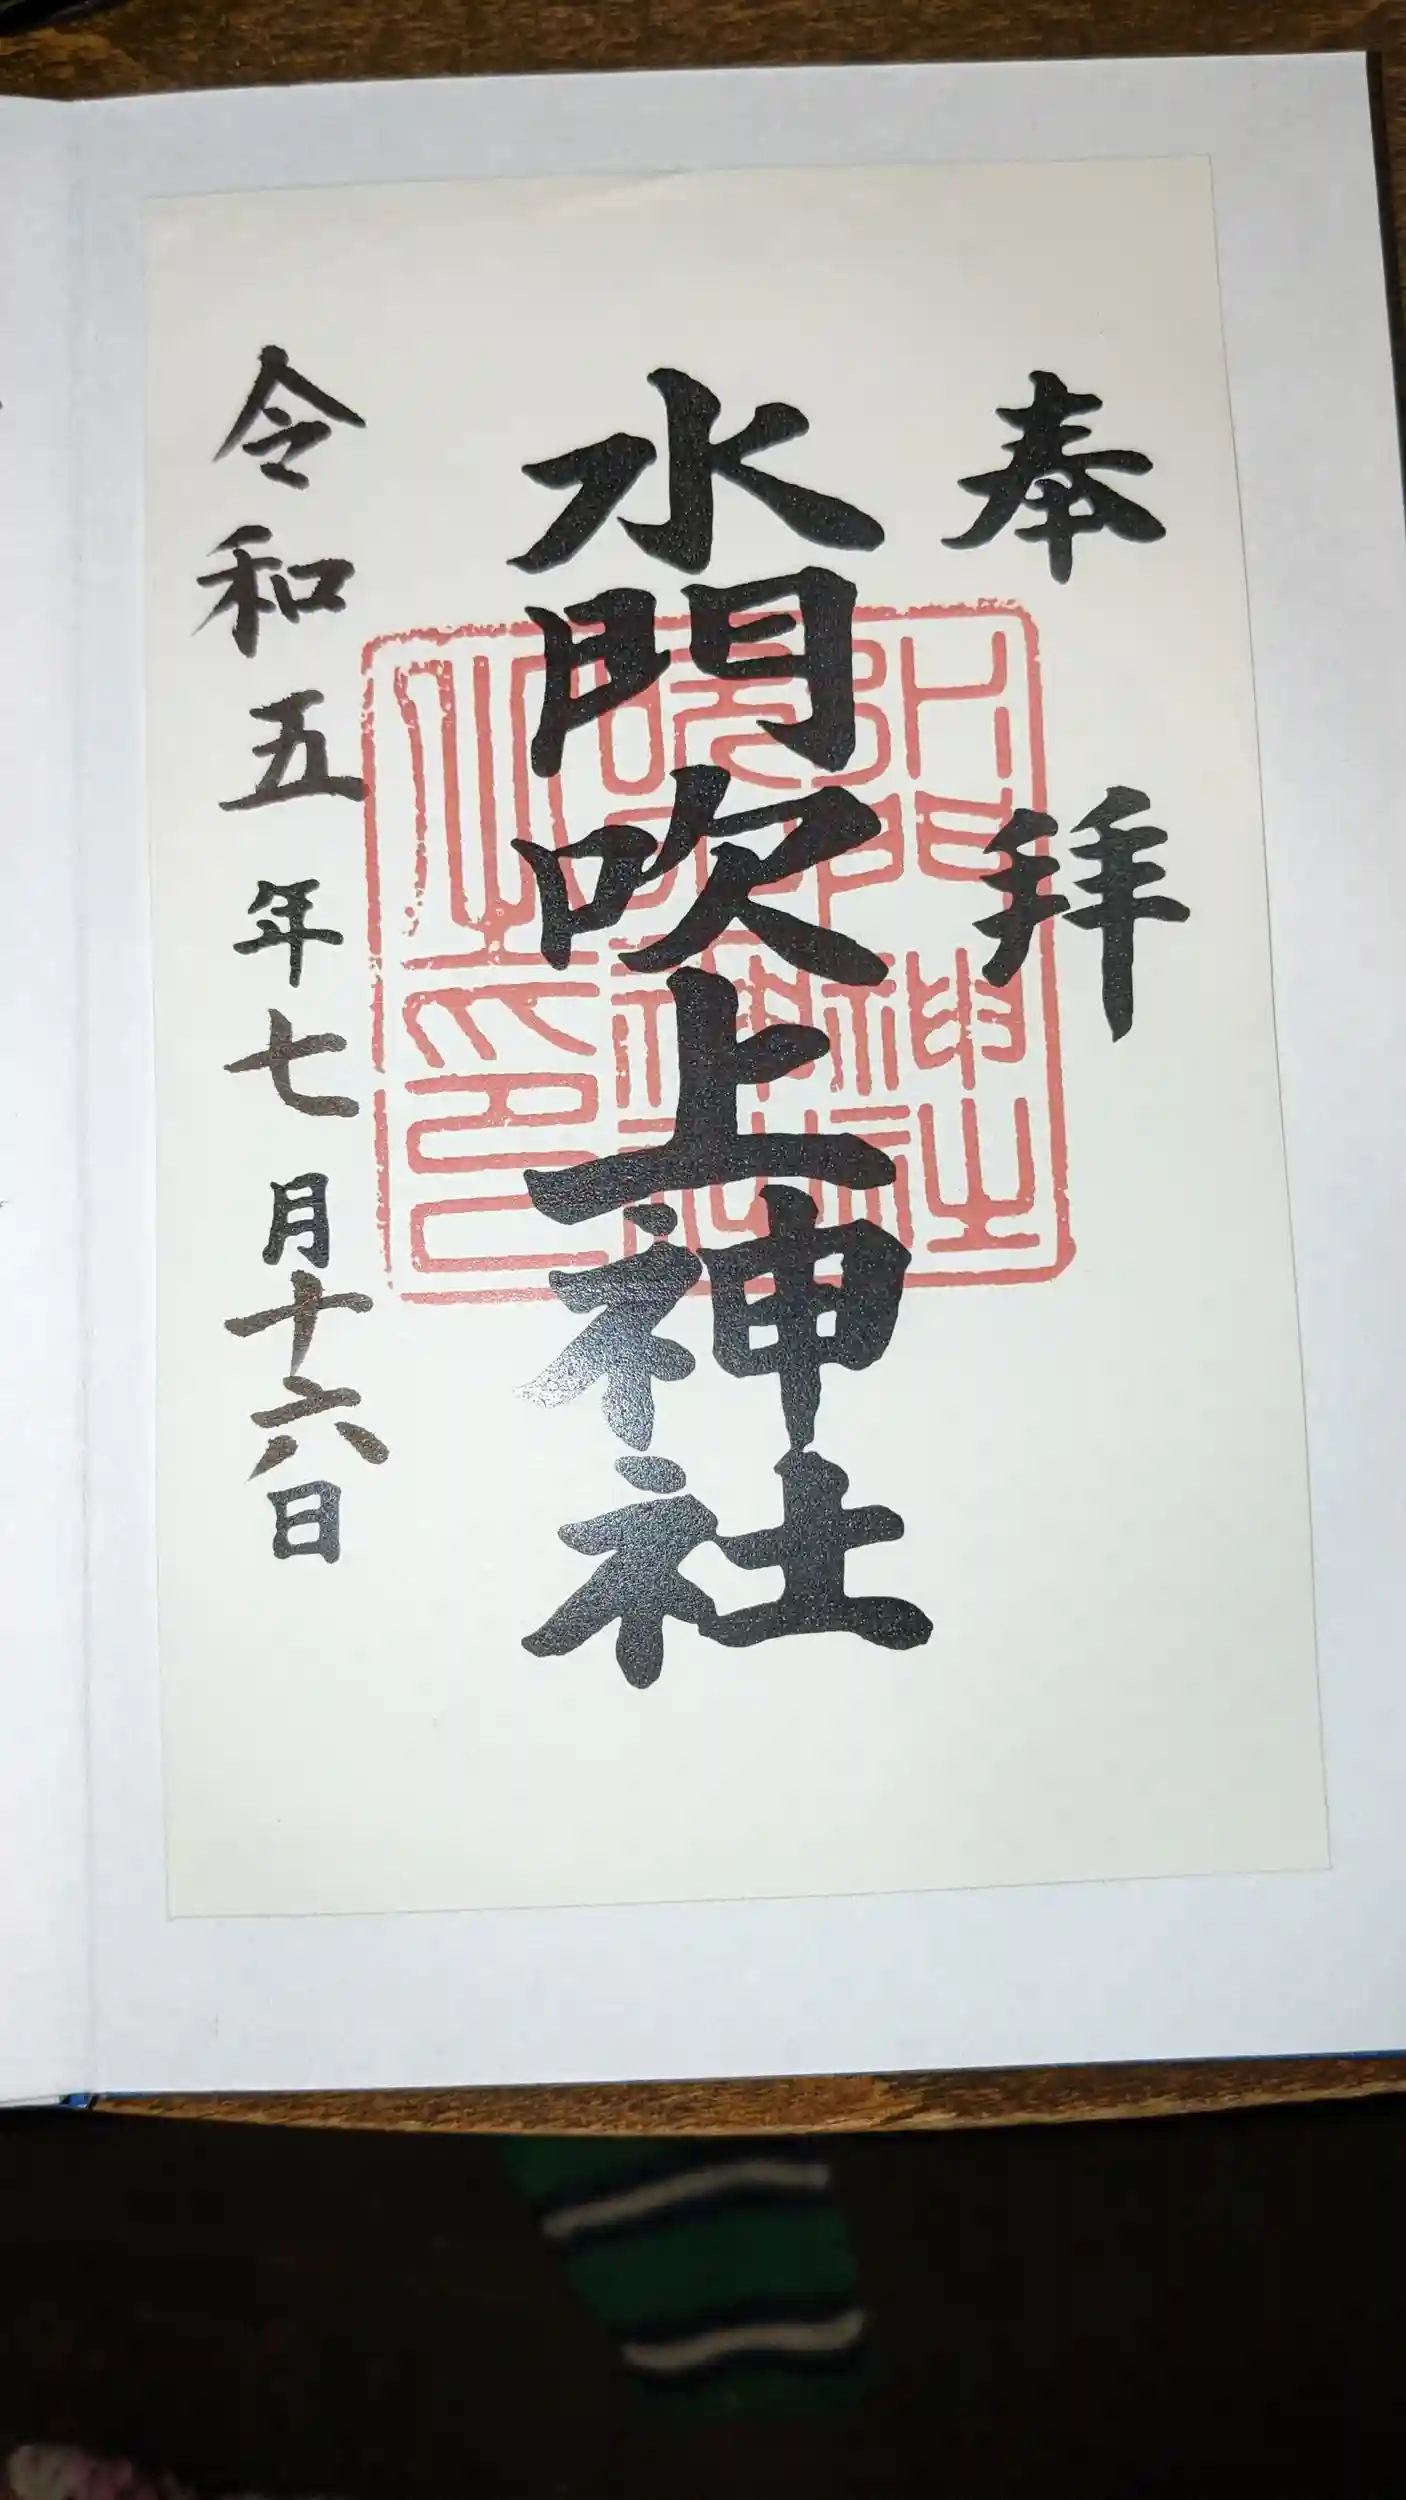 奉拝
水門吹上神社
令和五年七月十六日